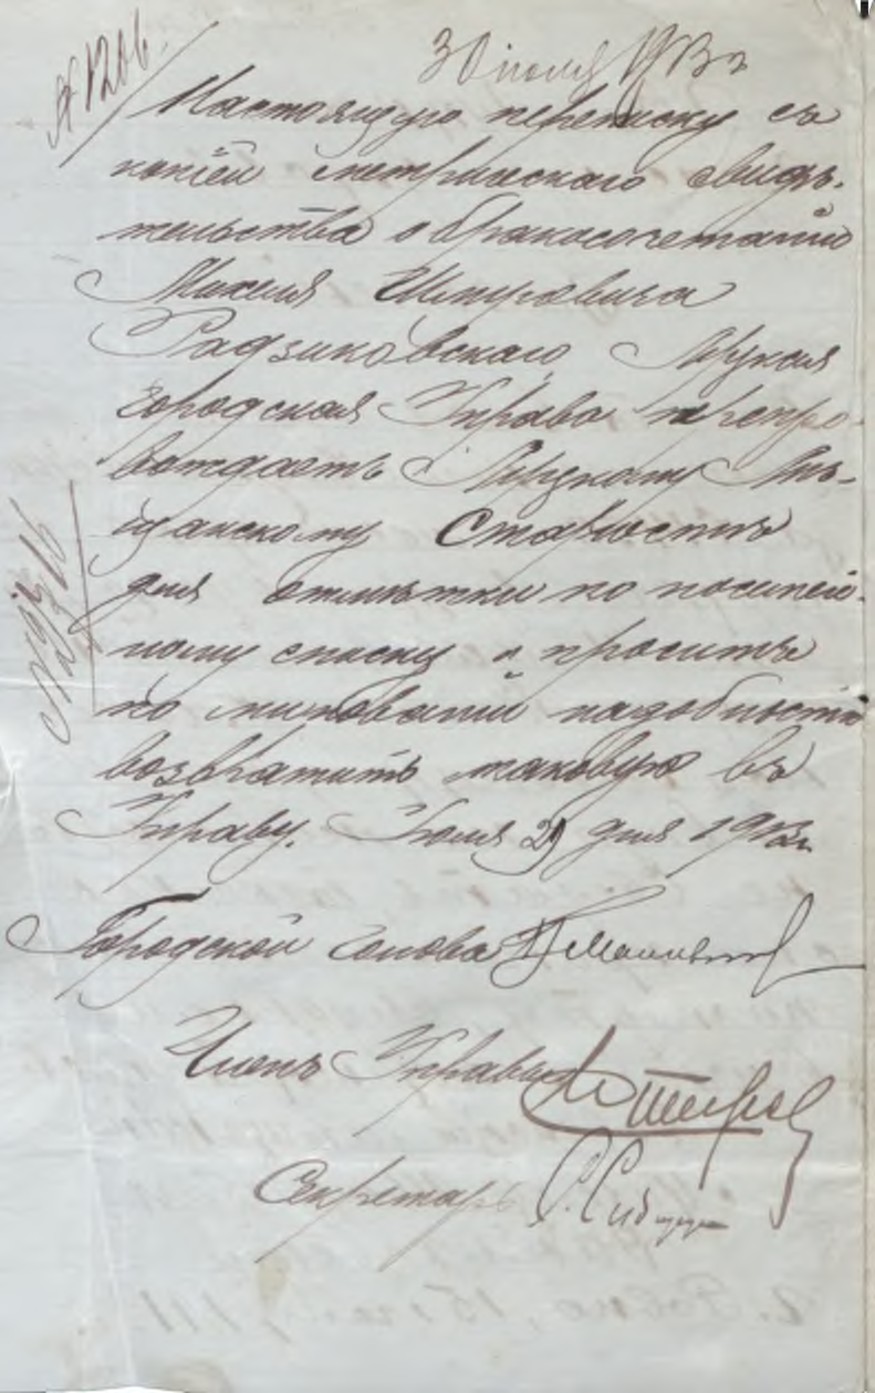 № 1206.
30 июля 1913 г
Настоящую переписку съ
копіей метрическаго свидѣ-
тельства о бракосочетаніи
Михеля Шмуровича
Радзиковскаго, Луцкая
Городская Управа препро-
вождаетъ Луцкому Мѣ-
щанскому Старостѣ
для отмѣтки по посемей-
ному списку и просить
по минованіи надобности
возвратить таковую въ
Управу. Іюля 29 дня 1913 г.
Городской Голова
Членъ Управы
Секретарь